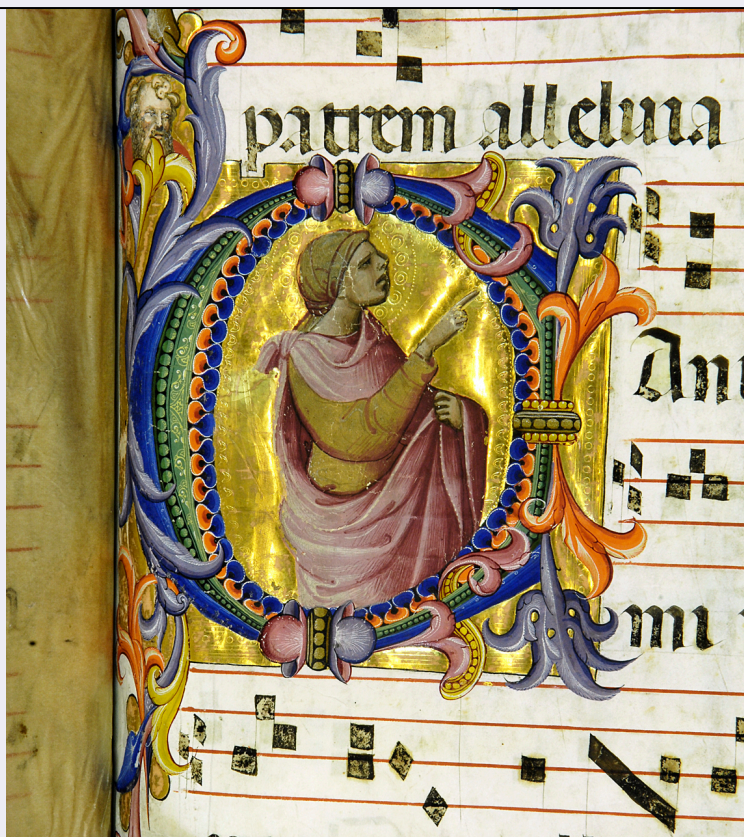 patrem alleluia
An
emi